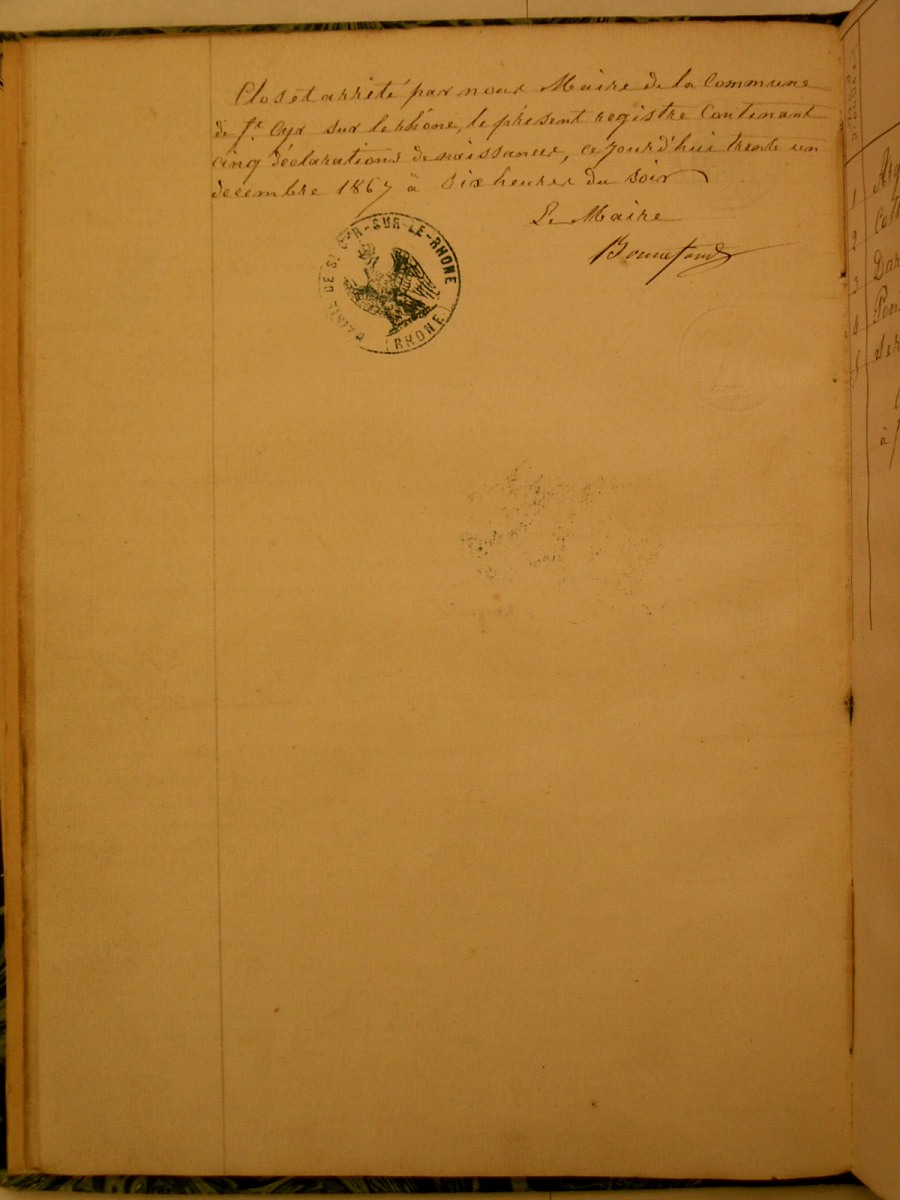 Clos et arrêté par nous Maire de la Commune
de St. Cyr sur le rhône, le présent registre Contenant
cinq déclarations de naissances, ce jourd'hui trente un
décembre 1867 à Six heures du Soir
Le Maire
Bonnefond
MAIRIE DE ST CYR-SUR-LE-RHONE
(RHONE)
1
2
3
4
5
à